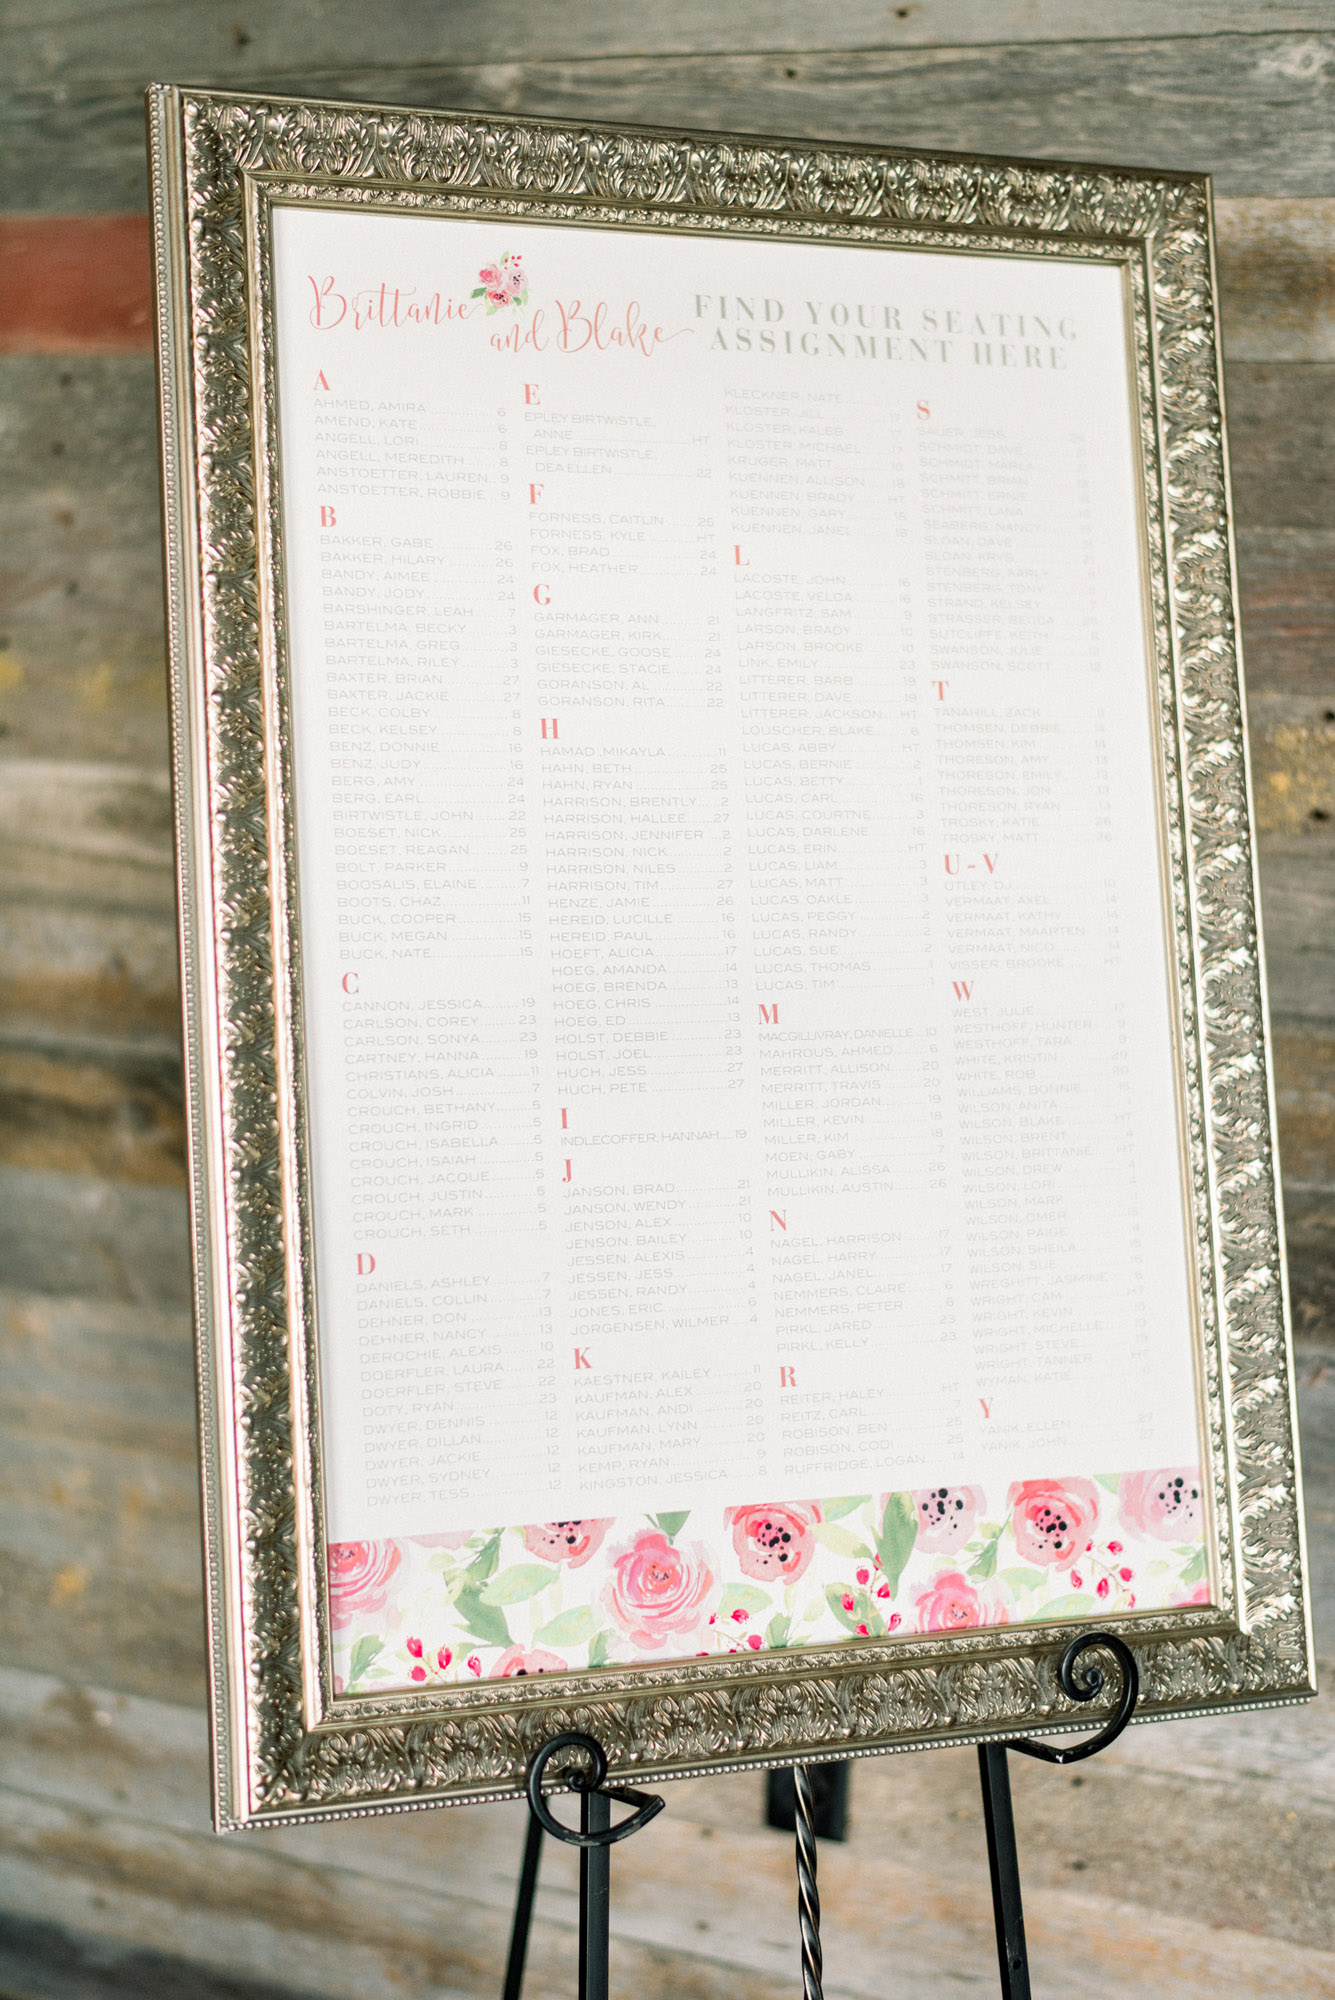 Brittanie
and Blake
FIND YOUR SEATING
ASSIGNMENT HERE
A
AHMED, AMIRA 6
AMEND, KATE 6
ANGELL, LORI 8
ANGELL, MEREDITH 8
ANSTOETTER, LAUREN 9
ANSTOETTER, ROBBIE 9
B
BAKKER, GABE 26
BAKKER, HILARY 26
BANDY, AIMEE 24
BANDY, JODY 24
BARSHINGER, LEAH 7
BARTELMA, BECKY 3
BARTELMA, GREG 3
BARTELMA, RILEY 3
BAXTER, BRIAN 27
BAXTER, JACKIE 27
BECK, COLBY 8
BECK, KELSEY 8
BENZ, DONNIE 16
BENZ, JUDY 16
BERG, AMY 24
BERG, EARL 24
BIRTWISTLE, JOHN 22
BOESET, NICK 25
BOESET, REAGAN 25
BOLT, PARKER 9
BOOSALIS, ELAINE 7
BOOTS, CHAZ 11
BUCK, COOPER 15
BUCK, MEGAN 15
BUCK, NATE 15
C
CANNON, JESSICA 19
CARLSON, COREY 23
CARLSON, SONYA 23
CARTNEY, HANNA 19
CHRISTIANS, ALICIA 11
COLVIN, JOSH 7
CROUCH, BETHANY 5
CROUCH, INGRID 5
CROUCH, ISABELLA 5
CROUCH, ISAIAH 5
CROUCH, JACQUE 5
CROUCH, JUSTIN 5
CROUCH, MARK 5
CROUCH, SETH 5
D
DANIELS, ASHLEY 7
DANIELS, COLLIN 7
DEHNER, DON 13
DEHNER, NANCY 13
DEROCHIE, ALEXIS 10
DOERFLER, LAURA 22
DOERFLER, STEVE 22
DOTY, RYAN 23
DWYER, DENNIS 12
DWYER, DILLAN 12
DWYER, JACKIE 12
DWYER, SYDNEY 12
DWYER, TESS 12
E
EPLEY BIRTWISTLE,
ANNE HT
EPLEY BIRTWISTLE,
DEA ELLEN 22
F
FORNESS, CAITLIN 25
FORNESS, KYLE HT
FOX, BRAD 24
FOX, HEATHER 24
G
GARMAGER, ANN 21
GARMAGER, KIRK 21
GIESECKE, GOOSE 24
GIESECKE, STACIE 24
GORANSON, AL 22
GORANSON, RITA 22
H
HAMAD, MIKAYLA 11
HAHN, BETH 25
HAHN, RYAN 25
HARRISON, BRENTLY 2
HARRISON, HALLEE 27
HARRISON, JENNIFER 2
HARRISON, NICK 2
HARRISON, NILES 2
HARRISON, TIM 27
HENZE, JAMIE 26
HEREID, LUCILLE 16
HEREID, PAUL 16
HOEFT, ALICIA 17
HOEG, AMANDA 14
HOEG, BRENDA 13
HOEG, CHRIS 14
HOEG, ED 13
HOLST, DEBBIE 23
HOLST, JOEL 23
HUCH, JESS 27
HUCH, PETE 27
I
INDLECOFFER, HANNAH 19
J
JANSON, BRAD 21
JANSON, WENDY 21
JENSON, ALEX 10
JENSON, BAILEY 10
JESSEN, ALEXIS 4
JESSEN, JESS 4
JESSEN, RANDY 4
JONES, ERIC 6
JORGENSEN, WILMER 4
K
KAESTNER, KAILEY 11
KAUFMAN, ALEX 20
KAUFMAN, ANDI 20
KAUFMAN, LYNN 20
KAUFMAN, MARY 20
KEMP, RYAN 9
KINGSTON, JESSICA 8
KLECKNER, NATE
KLOSTER, JILL
KLOSTER, KALEB
KLOSTER, MICHAEL
KRUGER, MATT
KUENNEN, ALLISON 18
KUENNEN, BRADY HT
KUENNEN, GARY 18
KUENNEN, JANEL 18
L
LACOSTE, JOHN 16
LACOSTE, VELDA 16
LANGFRITZ, SAM 9
LARSON, BRADY 10
LARSON, BROOKE 10
LINK, EMILY 23
LITTERER, BARB 19
LITTERER, DAVE 19
LITTERER, JACKSON HT
LOUSCHER, BLAKE 6
LUCAS, ABBY HT
LUCAS, BERNIE 2
LUCAS, BETTY 1
LUCAS, CARL 16
LUCAS, COURTNE 3
LUCAS, DARLENE 16
LUCAS, ERIN HT
LUCAS, LIAM 3
LUCAS, MATT 3
LUCAS, OAKLE 3
LUCAS, PEGGY 2
LUCAS, RANDY 2
LUCAS, SUE 2
LUCAS, THOMAS 1
LUCAS, TIM 1
M
MACGILLIVRAY, DANIELLE 10
MAHROUS, AHMED 6
MERRITT, ALLISON 20
MERRITT, TRAVIS 20
MILLER, JORDAN 19
MILLER, KEVIN 18
MILLER, KIM 18
MOEN, GABY 7
MULLIKIN, ALISSA 26
MULLIKIN, AUSTIN 26
N
NAGEL, HARRISON 17
NAGEL, HARRY 17
NAGEL, JANEL 17
NEMMERS, CLAIRE 6
NEMMERS, PETER 6
PIRKL, JARED 23
PIRKL, KELLY 23
R
REITER, HALEY HT
REITZ, CARL 7
ROBISON, BEN 25
ROBISON, CODI 25
RUFFRIDGE, LOGAN 14
S
SAUER, JESS
SCHMIDT, DAVE
SCHMIDT, MARLA
SCHMITT, BRIAN
SCHMITT, ERNIE
SCHMITT, LANA
SEABERG, NANCY
SLOAN, DAVE
SLOAN, KRYS
STENBERG, KARLY
STENBERG, TONY
STRAND, KELSEY
STRASSER, BECCA
SUTCLIFFE, KEITH
SWANSON, JULIE
SWANSON, SCOTT
T
TANAHILL, ZACK
THOMSEN, DEBBIE 14
THOMSEN, KIM 14
THORESON, AMY 13
THORESON, EMILY 13
THORESON, JON 13
THORESON, RYAN 13
TROSKY, KATIE 26
TROSKY, MATT 26
U-V
UTLEY, DJ 10
VERMAAT, AXEL 14
VERMAAT, KATHY 14
VERMAAT, MAARTEN 14
VERMAAT, NICO 14
VISSER, BROOKE HT
W
WEST, JULIE
WESTHOFF, HUNTER 9
WESTHOFF, TARA 9
WHITE, KRISTIN 20
WHITE, ROB 20
WILLIAMS, BONNIE
WILSON, ANITA
WILSON, BLAKE HT
WILSON, BRENT
WILSON, BRITTANIE HT
WILSON, DREW
WILSON, LORI
WILSON, MARK
WILSON, OMER
WILSON, PAIGE
WILSON, SHEILA
WILSON, SUE
WREGHITT, JASMINE 6
WRIGHT, CAM HT
WRIGHT, KEVIN
WRIGHT, MICHELLE
WRIGHT, STEVE
WRIGHT, TANNER HT
WYMAN, KATIE
Y
YANIK, ELLEN 27
YANIK, JOHN 27